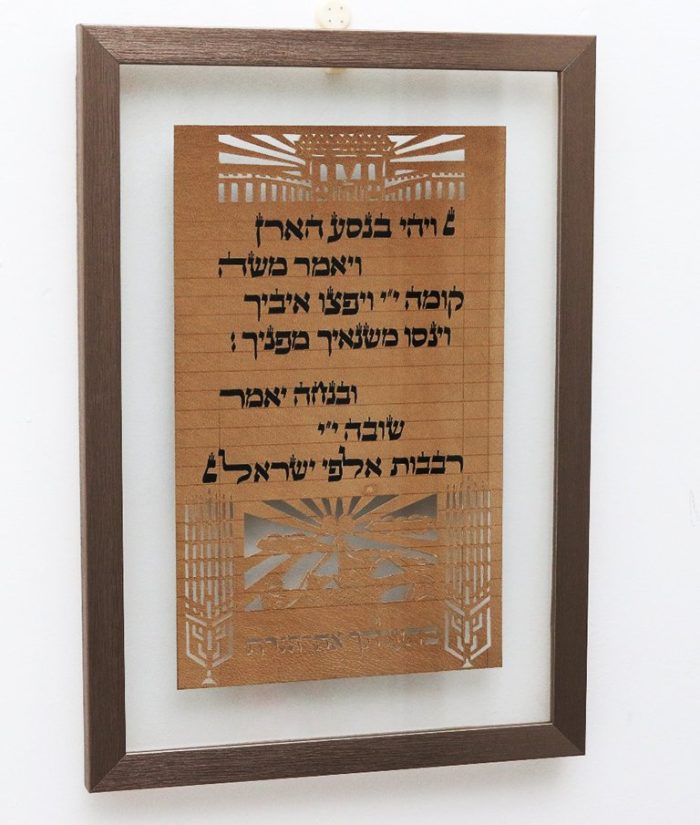 ׆ ויהי בנסע הארן
ויאמר משה
קומה י״י ויפצו איביך
וינסו משנאיך מפניך :
ובנחה יאמר
שובה י״י
רבבות אלפי ישראל ׆
בהעלתך את הנרת